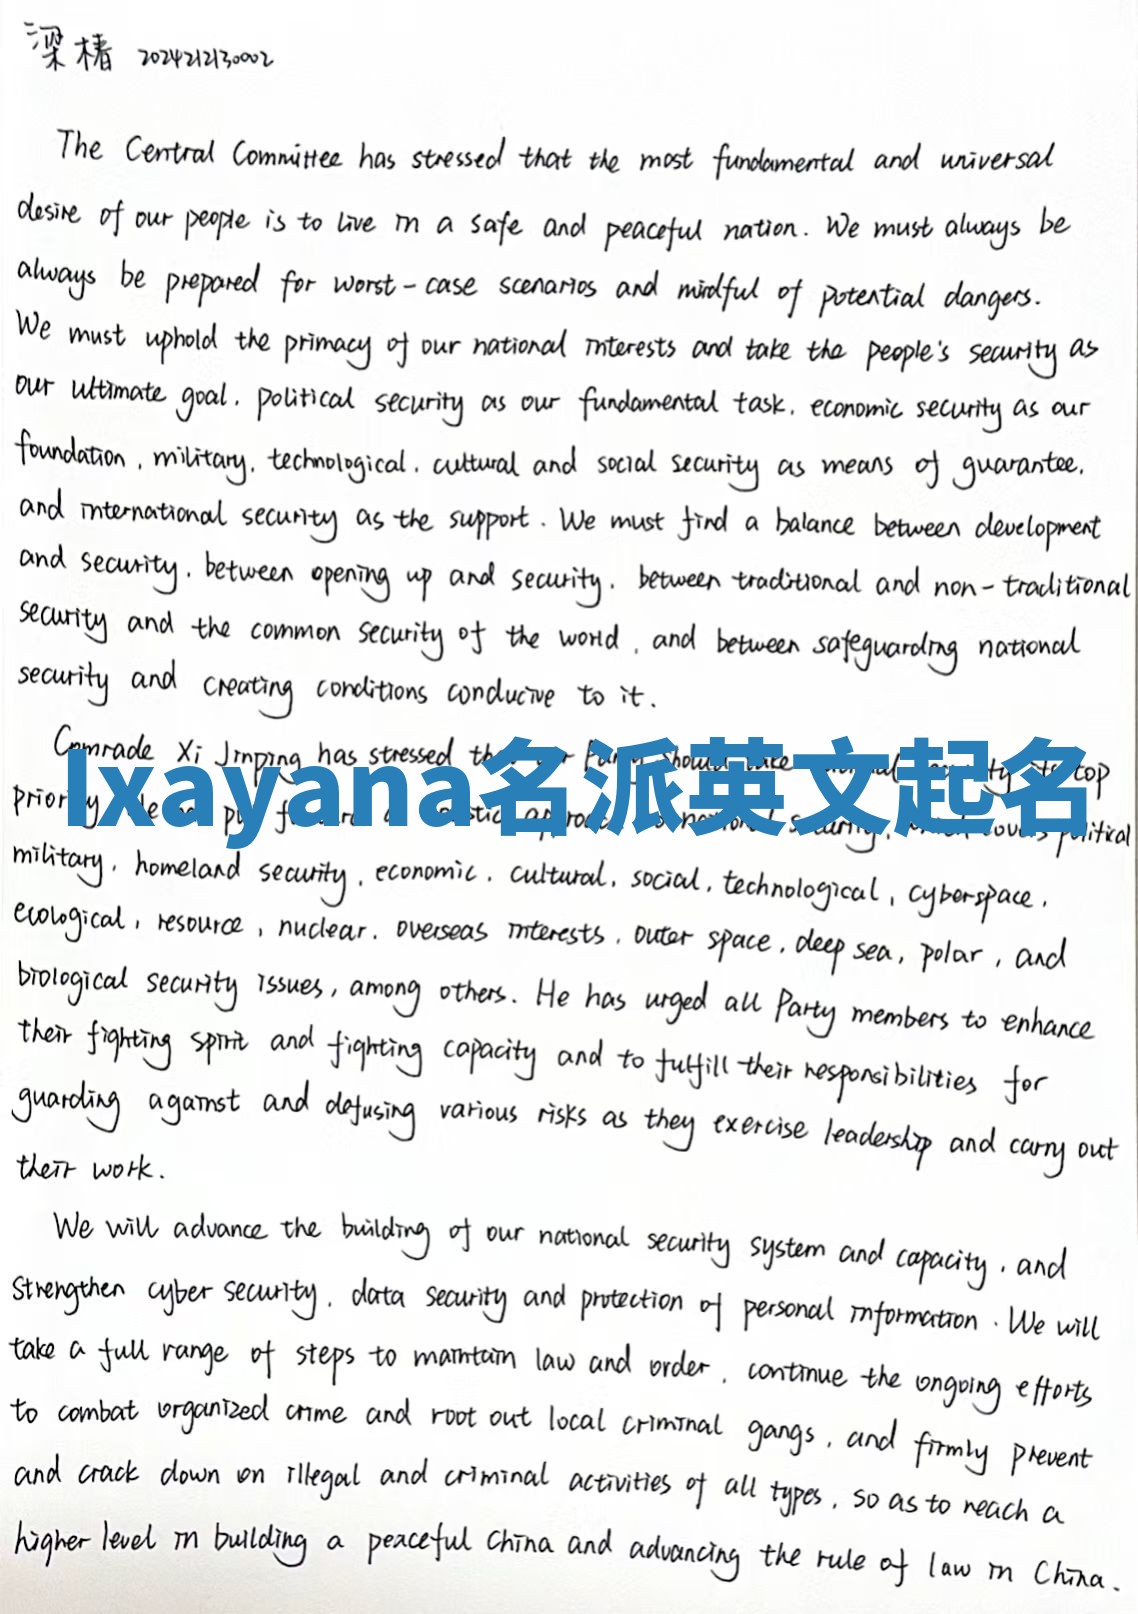 梁椿 2024212130002
The Central Committee has stressed that the most fundamental and universal
desire of our people is to live in a safe and peaceful nation. We must always be
always be prepared for worst-case scenarios and mindful of potential dangers.
We must uphold the primacy of our national interests and take the people's security as
our ultimate goal, political security as our fundamental task, economic security as our
foundation, military, technological, cultural and social security as means of guarantee,
and international security as the support. We must find a balance between development
and security, between opening up and security, between traditional and non-traditional
security and the common security of the world, and between safeguarding national
security and creating conditions conducive to it.
Comrade Xi Jinping has stressed top
Ixayana名派英文起名
political
military, homeland security, economic, cultural, social, technological, cyberspace,
ecological, resource, nuclear, overseas interests, outer space, deep sea, polar, and
biological security issues, among others. He has urged all Party members to enhance
their fighting spirit and fighting capacity and to fulfill their responsibilities for
guarding against and defusing various risks as they exercise leadership and carry out
their work.
We will advance the building of our national security system and capacity, and
strengthen cyber security, data security and protection of personal information. We will
take a full range of steps to maintain law and order, continue the ongoing efforts
to combat organized crime and root out local criminal gangs, and firmly prevent
and crack down on illegal and criminal activities of all types, so as to reach a
higher level in building a peaceful China and advancing the rule of law in China.